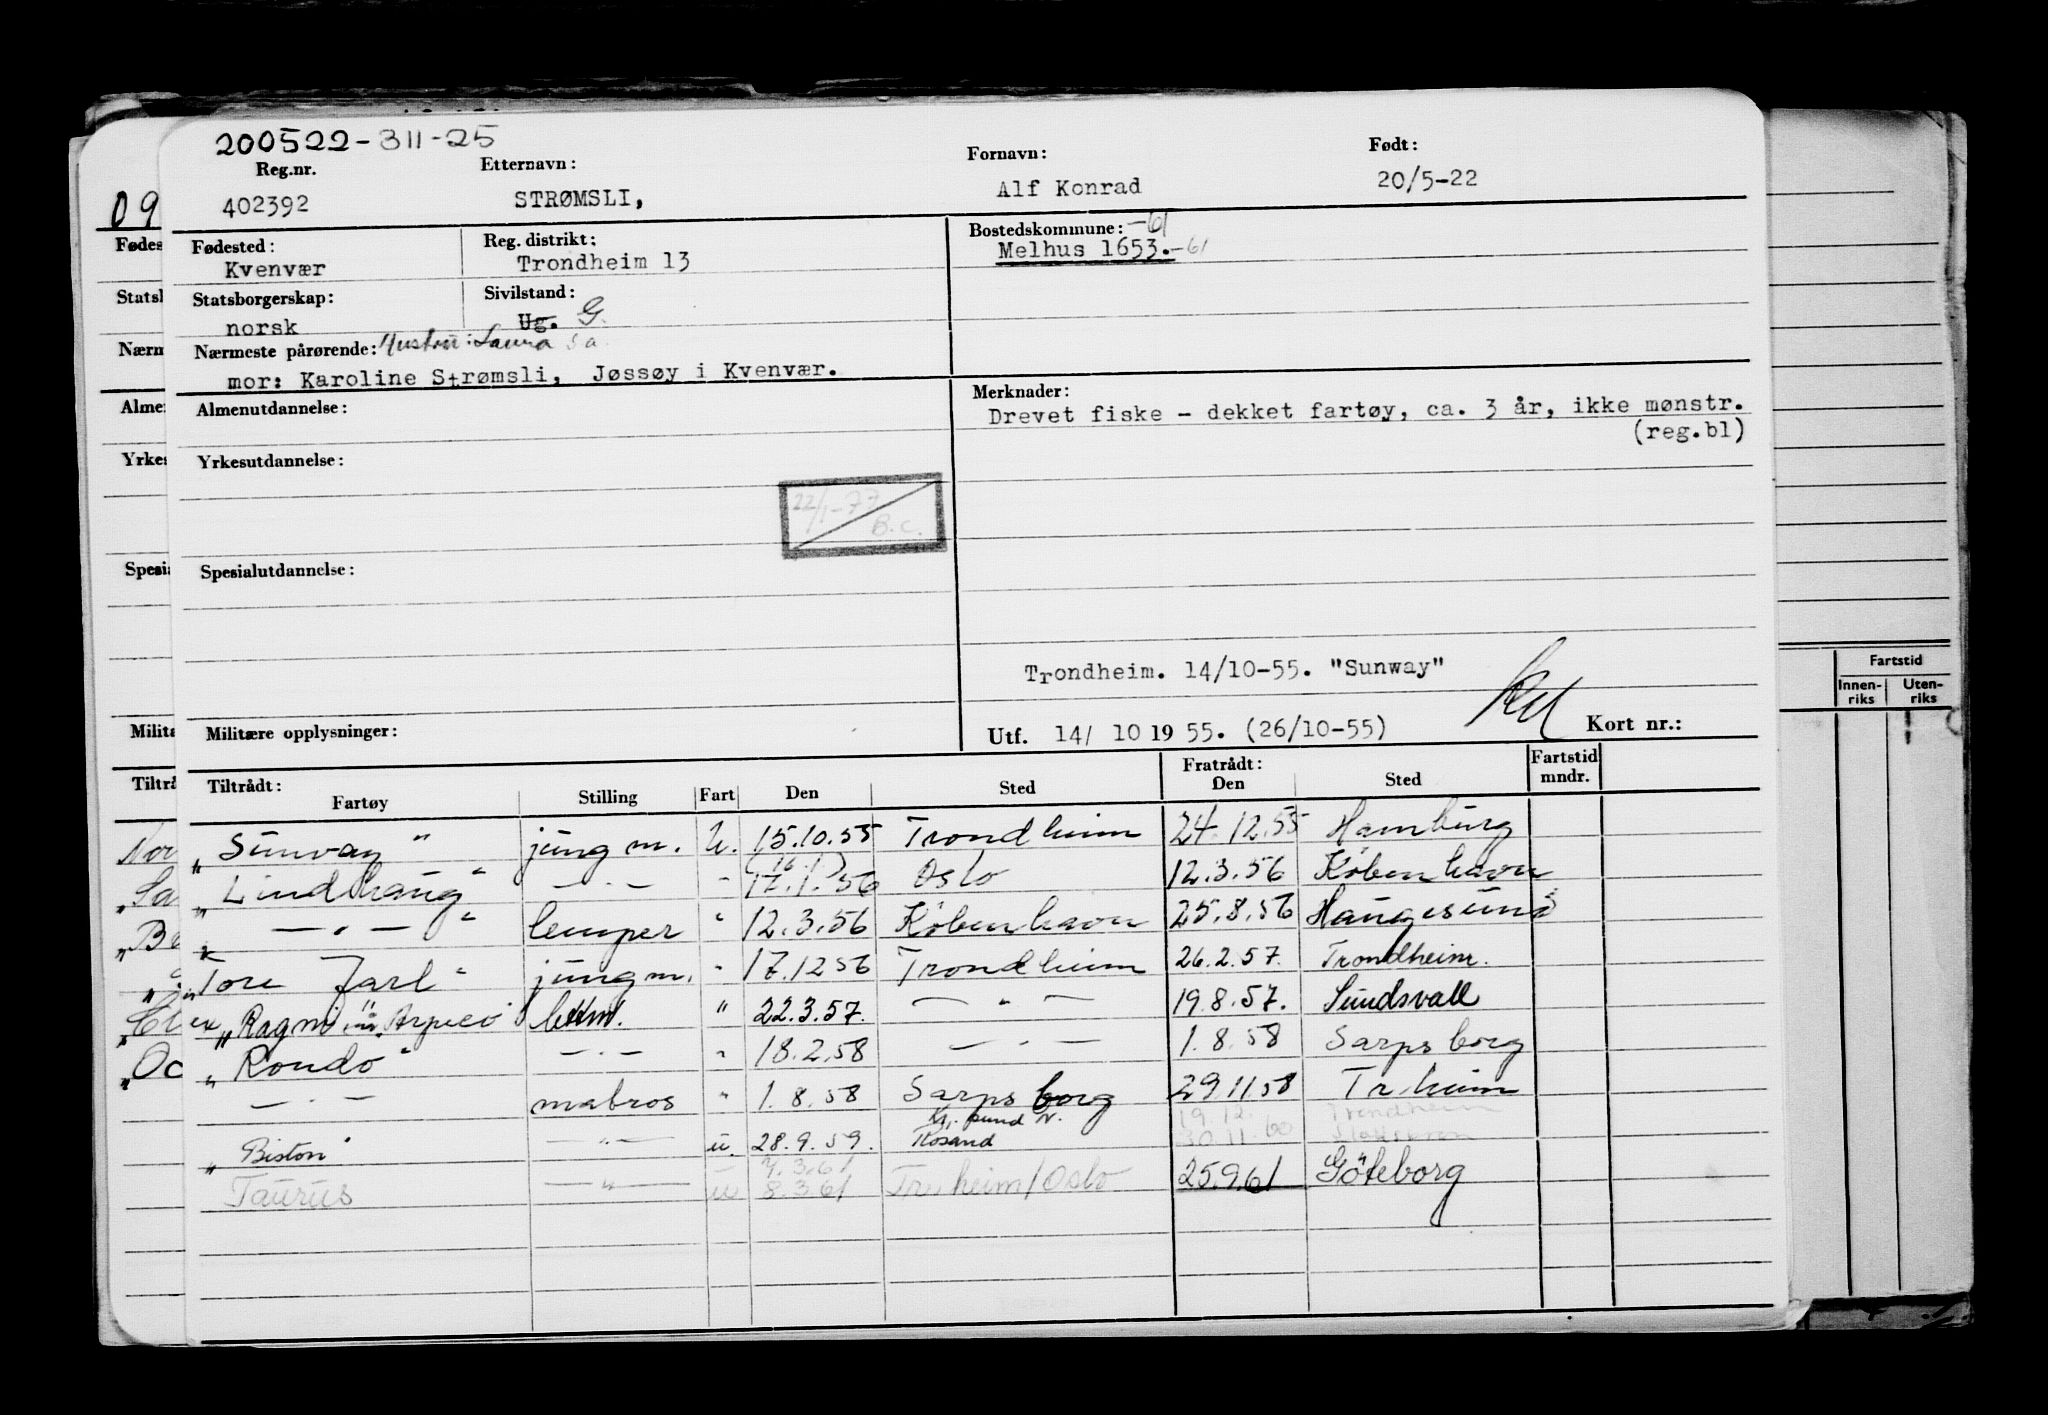 200522-311-25
Reg.nr. Etternavn: Fornavn: Født:
402392 STRØMSLI, Alf Konrad 20/5-22
Fødested: Reg. distrikt: Bostedskommune: -61
Kvenvær Trondheim 13 Melhus 1653.-61
Statsborgerskap: Sivilstand:
norsk Ug. G.
Nærmeste pårørende: Hustru: Laura
mor: Karoline Strømsli, Jøssøy i Kvenvær.
Almenutdannelse: Merknader:
Drevet fiske - dekket fartøy, ca. 3 år, ikke mønstr.
(reg.bl)
Yrkesutdannelse:
22/1-77
B.C.
Spesialutdannelse:
Trondheim. 14/10-55. "Sunway"
Militære opplysninger: Utf. 14/ 10 19 55. (26/10-55) Kort nr.:
Tiltrådt: Fratrådt: Fartstid
Fartøy Stilling Fart Den Sted Den Sted mndr.
"Sunway" jungm. U. 15.10.55 Trondheim 24.12.55 Hamburg
(16.1)
"Lindhaug" -.- " 17.1.56 Oslo 12.3.56 København
" -.- " lemper " 12.3.56 København 25.8.56 Haugesund
"Tore Jarl" jungm. " 17.12 56 Trondheim 26.2.57. Trondheim.
ex "Ragni" lettm. " 22.3.57. -"- 19.8.57. Sundsvall
"Rondo" -.- " 18.2.58 -.- 1.8.58 Sarpsborg
-.- matros " 1.8.58 Sarpsborg 29.11.58 Tr.heim
Kr.sund N. 19.12. Trondheim
"Biston" -"- u. 28.9.59. 30.11.60
7.3.61
Taurus -"- u 8.3.61 Tr.heim/Oslo 25.9.61 Göteborg
09
Fødes
Statsl
Nærm
Almer
Yrkes
Spesia
Milita
Tiltrå
Nor
"Sa
"Be
"Oc
Fartstid
Innen-riks Uten-riks